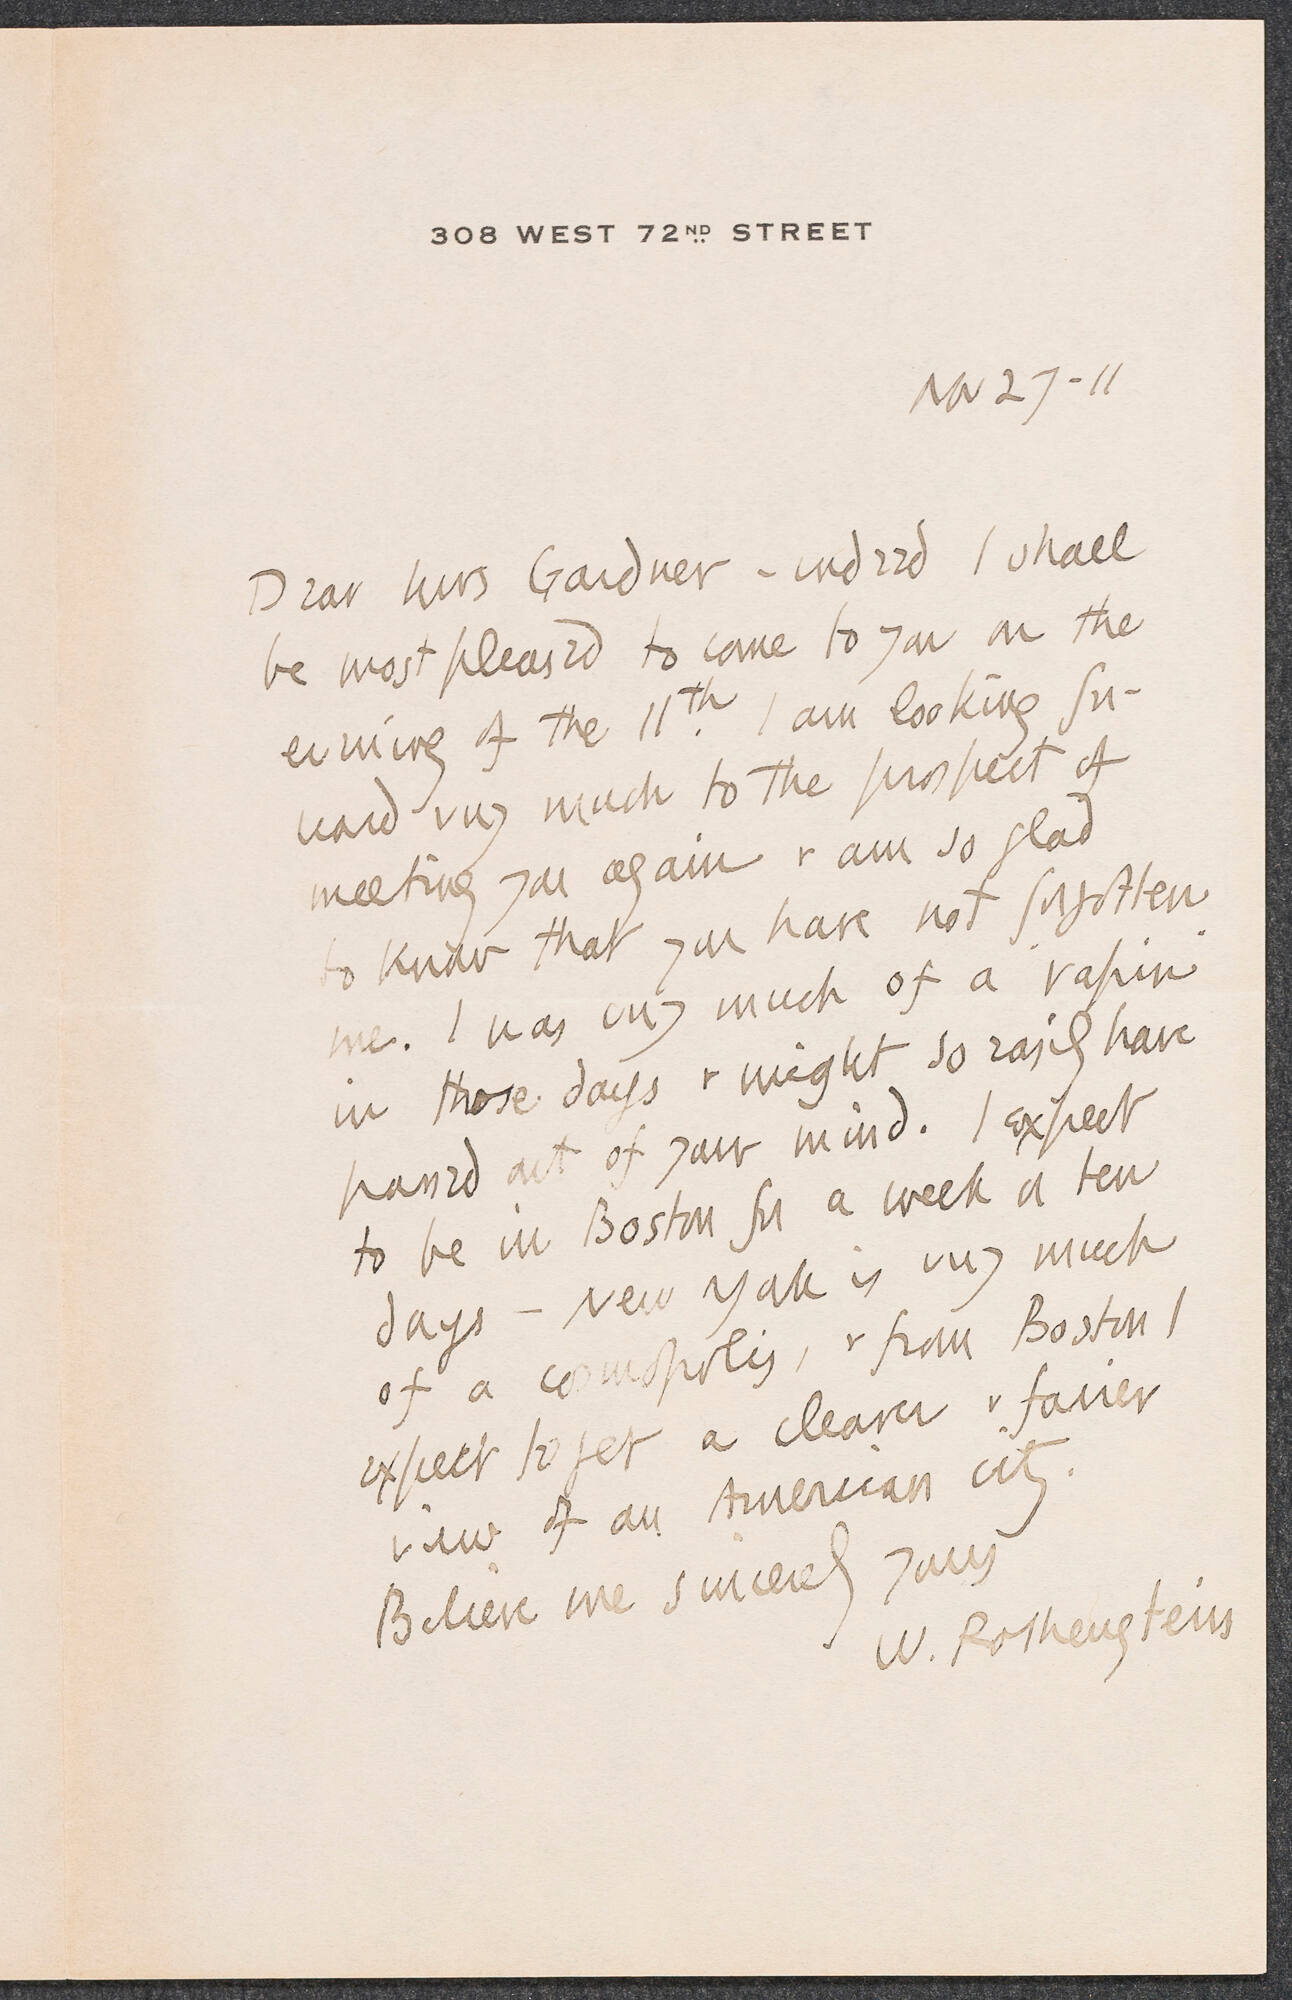 308 WEST 72ND STREET
Nov 27-11
Dear Mrs Gardner - indeed I shall
be most pleased to come to you on the
evening of the 11th. I am looking for-
ward very much to the prospect of
meeting you again & am so glad
to know that you have not forgotten
me. I was very much of a 'rapin'
in those days & might so easily have
passed out of your mind. I expect
to be in Boston for a week or ten
days - New York is very much
of a cosmopolis, & from Boston I
expect to get a clearer & fairer
view of an American city.
Believe me sincerely yours
W. Rothenstein